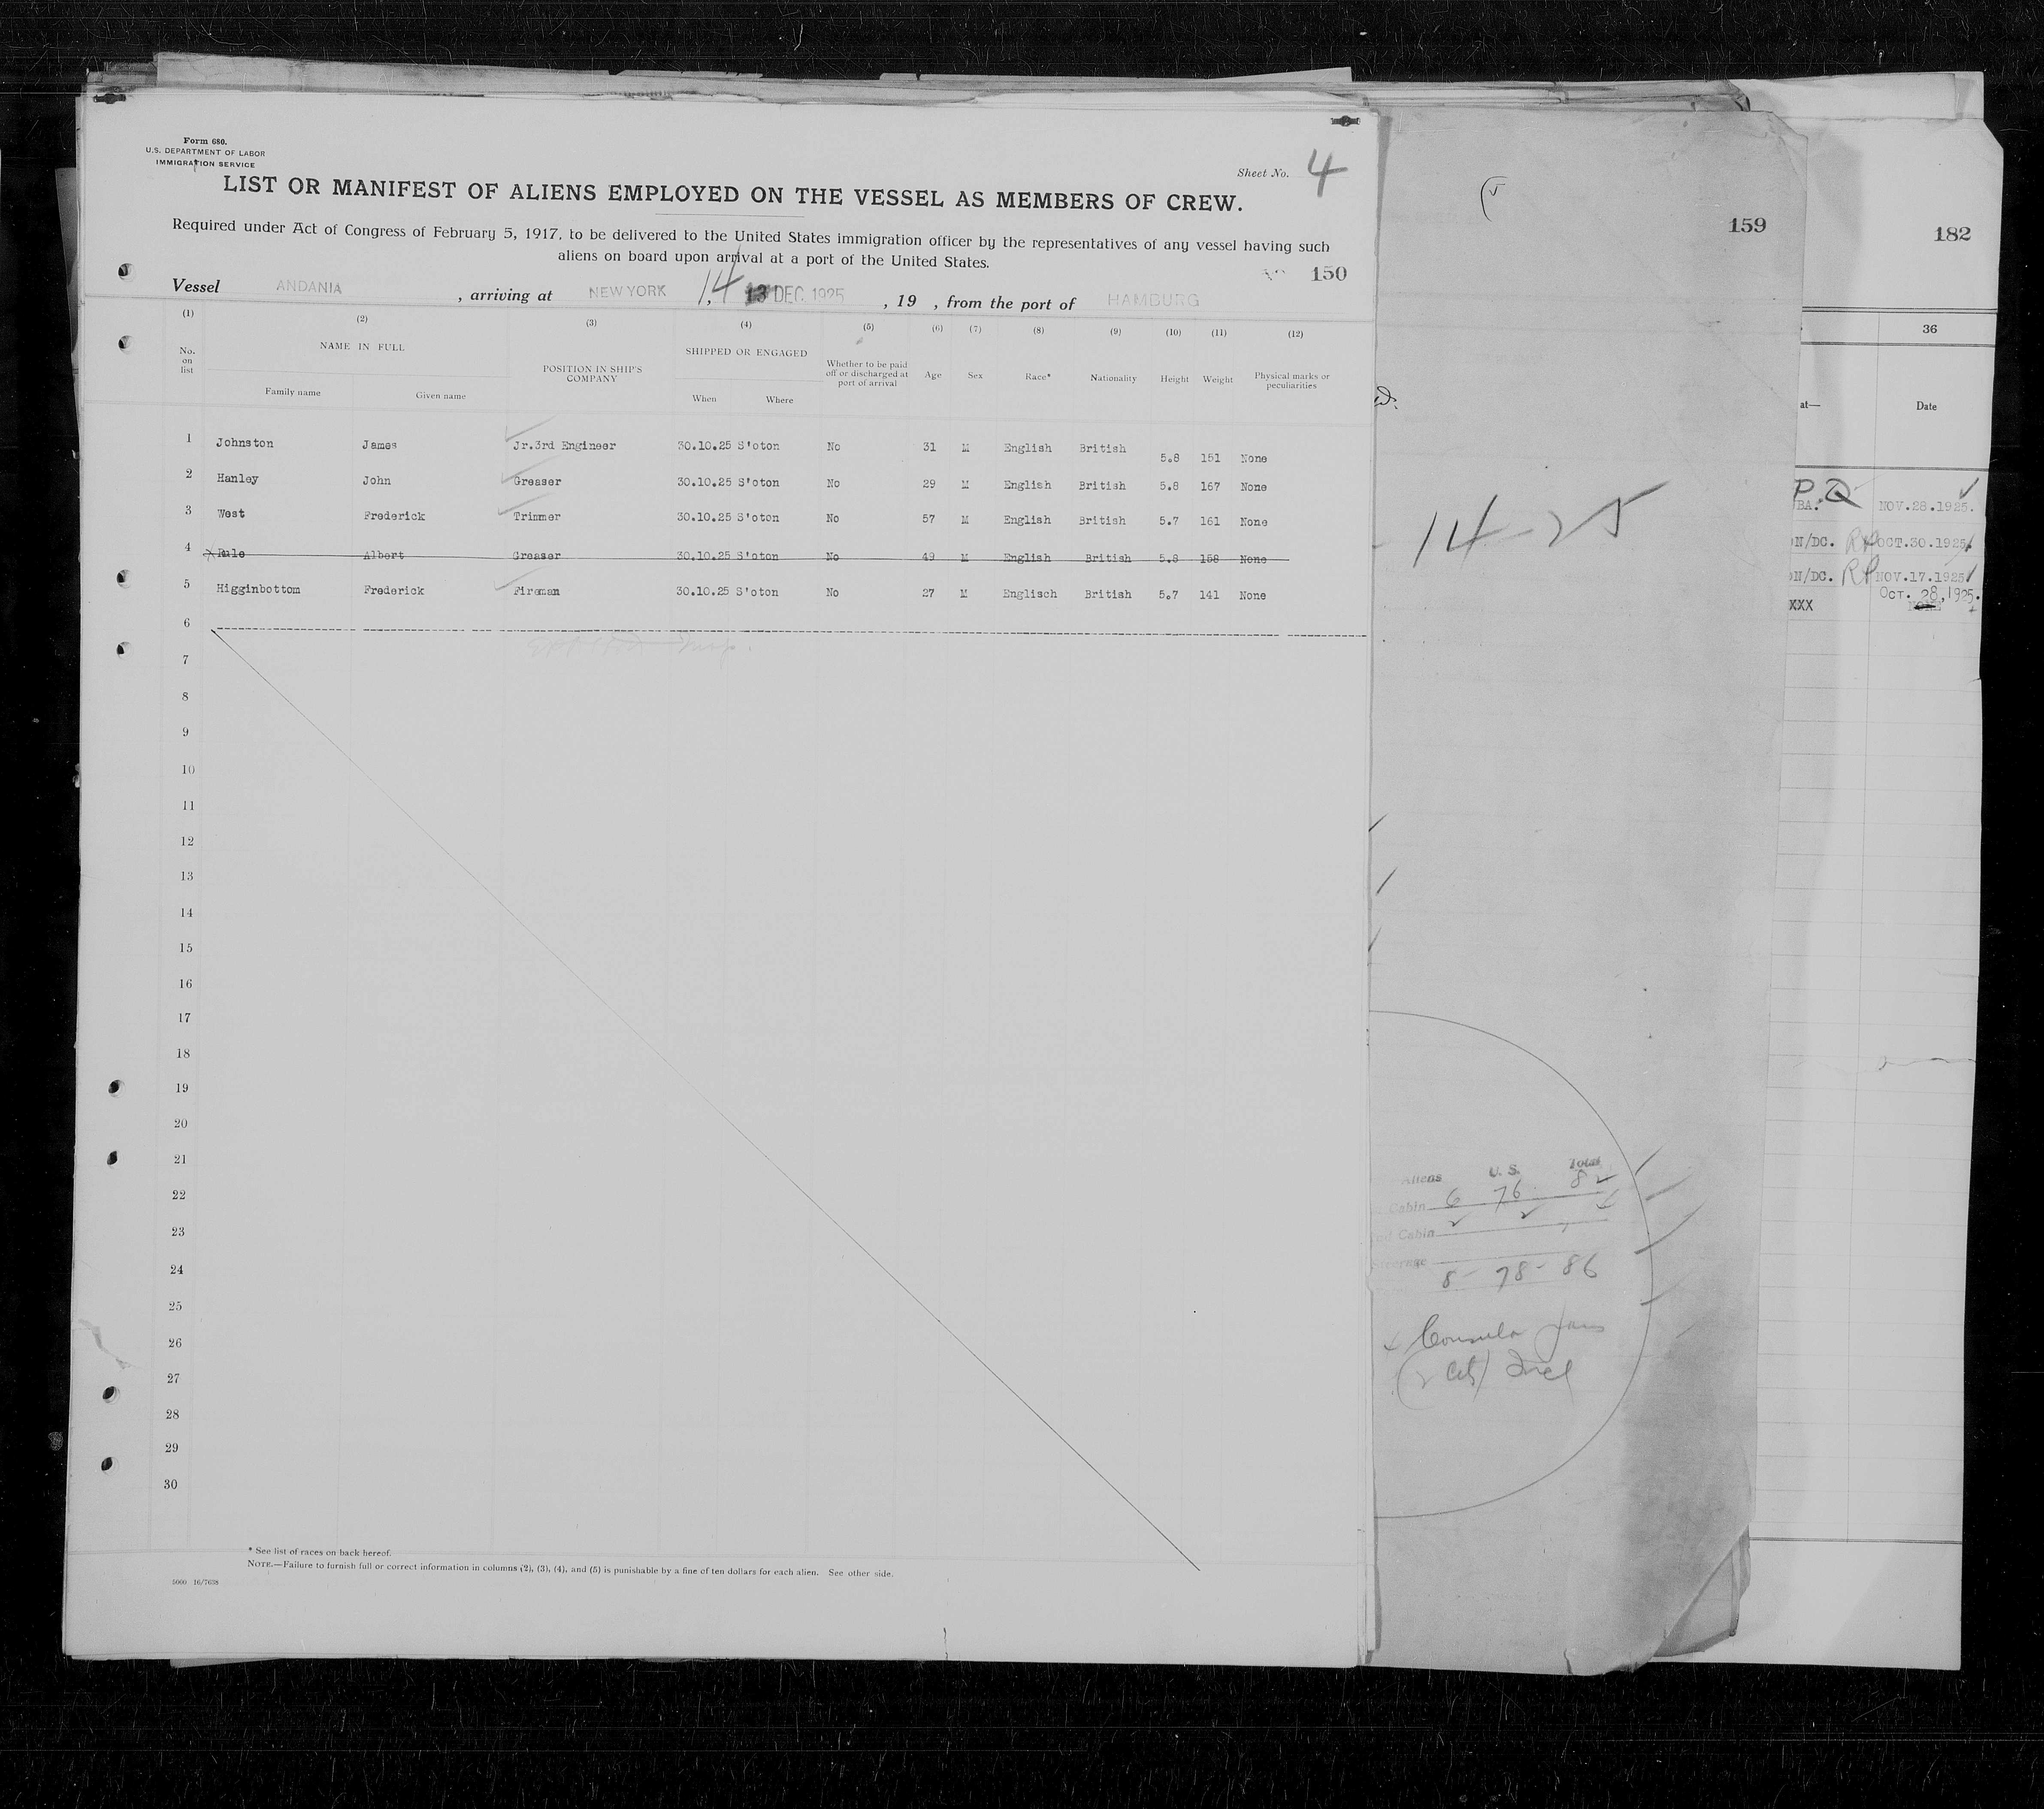 Form 680.
U.S. DEPARTMENT OF LABOR
IMMIGRATION SERVICE
Sheet No. 4
LIST OR MANIFEST OF ALIENS EMPLOYED ON THE VESSEL AS MEMBERS OF CREW.
Required under Act of Congress of February 5, 1917, to be delivered to the United States immigration officer by the representatives of any vessel having such
aliens on board upon arrival at a port of the United States.
150
Vessel ANDANIA , arriving at NEW YORK 14 13 DEC 1925 , 19 , from the port of HAMBURG
(1) (2) (3) (4) (5) (6) (7) (8) (9) (10) (11) (12)
No. on list NAME IN FULL Family name Given name POSITION IN SHIP'S COMPANY SHIPPED OR ENGAGED When Where Whether to be paid off or discharged at port of arrival Age Sex Race* Nationality Height Weight Physical marks or peculiarities
1 Johnston James Jr.3rd Engineer 30.10.25 S'oton No 31 M English British 5.8 151 None
2 Hanley John Greaser 30.10.25 S'oton No 29 M English British 5.8 167 None
3 West Frederick Trimmer 30.10.25 S'oton No 57 M English British 5.7 161 None
4 Rule Albert Greaser 30.10.25 S'oton No 49 M English British 5.8 158 None
5 Higginbottom Frederick Fireman 30.10.25 S'oton No 27 M Englisch British 5.7 141 None
6
7
8
9
10
11
12
13
14
15
16
17
18
19
20
21
22
23
24
25
26
27
28
29
30
* See list of races on back hereof.
NOTE.—Failure to furnish full or correct information in columns (2), (3), (4), and (5) is punishable by a fine of ten dollars for each alien. See other side.
5000 16/7638
159
14-25
Aliens U. S. Total
Cabin 6 76 82
Cabin
Steerage
8 - 78 - 86
182
36
at— Date
UBA. NOV.28.1925.
ON/DC. OCT.30.1925
ON/DC. NOV.17.1925
OCT. 28, 1925.
XXX NONE